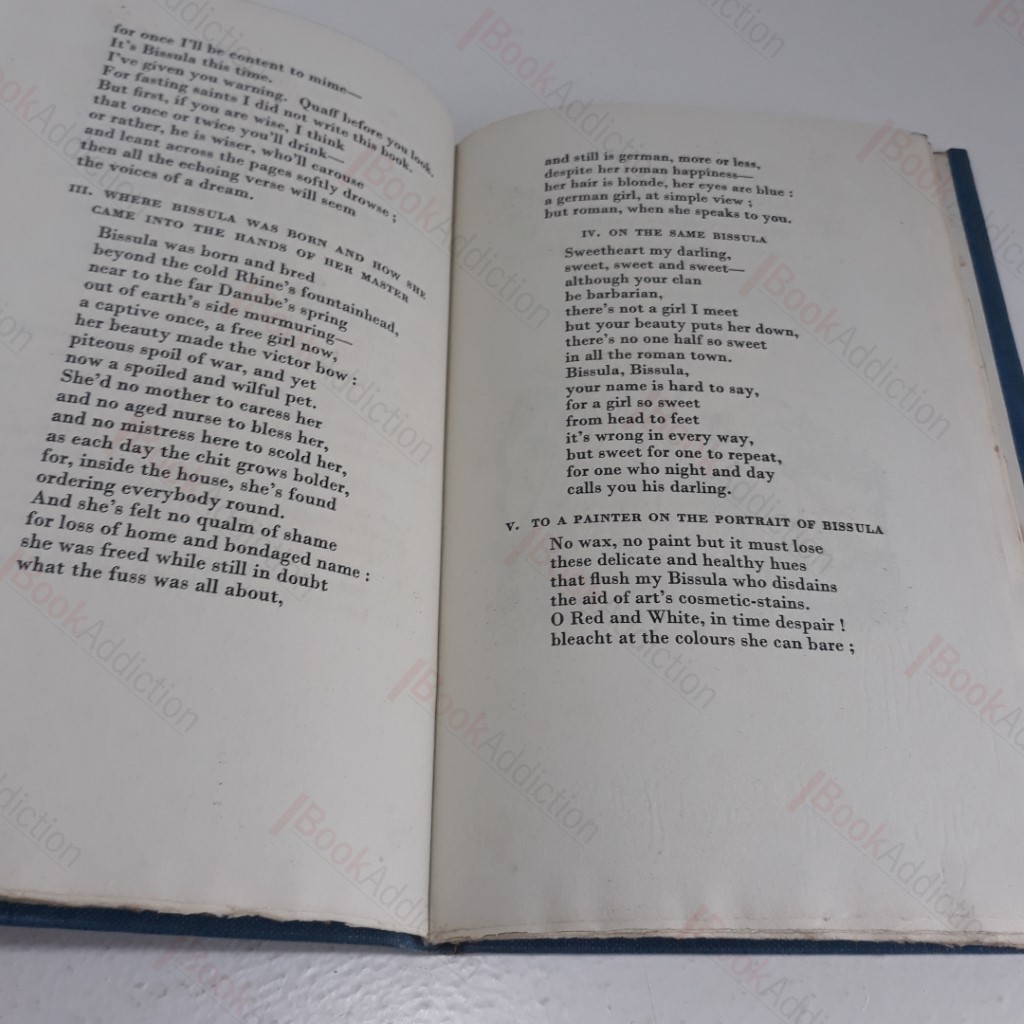 for once I'll be content to mime—
It's Bissula this time.
I've given you warning. Quaff before you look.
For fasting saints I did not write this book.
But first, if you are wise, I think
that once or twice you'll drink—
or rather, he is wiser, who'll carouse
and leant across the pages softly drowse;
then all the echoing verse will seem
the voices of a dream.
III. WHERE BISSULA WAS BORN AND HOW SHE
CAME INTO THE HANDS OF HER MASTER
Bissula was born and bred
beyond the cold Rhine's fountainhead,
near to the far Danube's spring
out of earth's side murmuring—
a captive once, a free girl now,
her beauty made the victor bow:
piteous spoil of war, and yet
now a spoiled and wilful pet.
She'd no mother to caress her
and no aged nurse to bless her,
and no mistress here to scold her,
as each day the chit grows bolder,
for, inside the house, she's found
ordering everybody round.
And she's felt no qualm of shame
for loss of home and bondaged name:
she was freed while still in doubt
what the fuss was all about,
and still is german, more or less,
despite her roman happiness—
her hair is blonde, her eyes are blue:
a german girl, at simple view;
but roman, when she speaks to you.
IV. ON THE SAME BISSULA
Sweetheart my darling,
sweet, sweet and sweet—
although your clan
be barbarian,
there's not a girl I meet
but your beauty puts her down,
there's no one half so sweet
in all the roman town.
Bissula, Bissula,
your name is hard to say,
for a girl so sweet
from head to feet
it's wrong in every way,
but sweet for one to repeat,
for one who night and day
calls you his darling.
V. TO A PAINTER ON THE PORTRAIT OF BISSULA
No wax, no paint but it must lose
these delicate and healthy hues
that flush my Bissula who disdains
the aid of art's cosmetic-stains.
O Red and White, in time despair!
bleacht at the colours she can bare;
BookAddiction